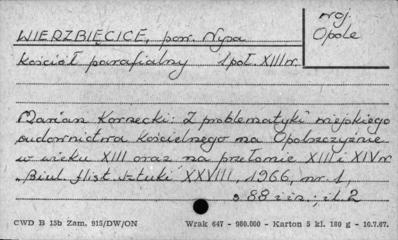 WIERZBIĘCICE, pow. Nysa
woj. Opole
kościół parafialny 1 poł. XIII w.
Marian Kornecki: Z problematyki wiejskiego
budownictwa kościelnego na Opolszczyźnie
w wieku XIII oraz na przełomie XIII i XIV w.
"Biul. Hist. Sztuki" XXVIII, 1966, nr. 1,
s 88 i in.; il. 2
CWD B 15b Zam. 915/DW/ON Wrak 647 - 980.000 - Karton 5 kl. 180 g - 10.7.67.